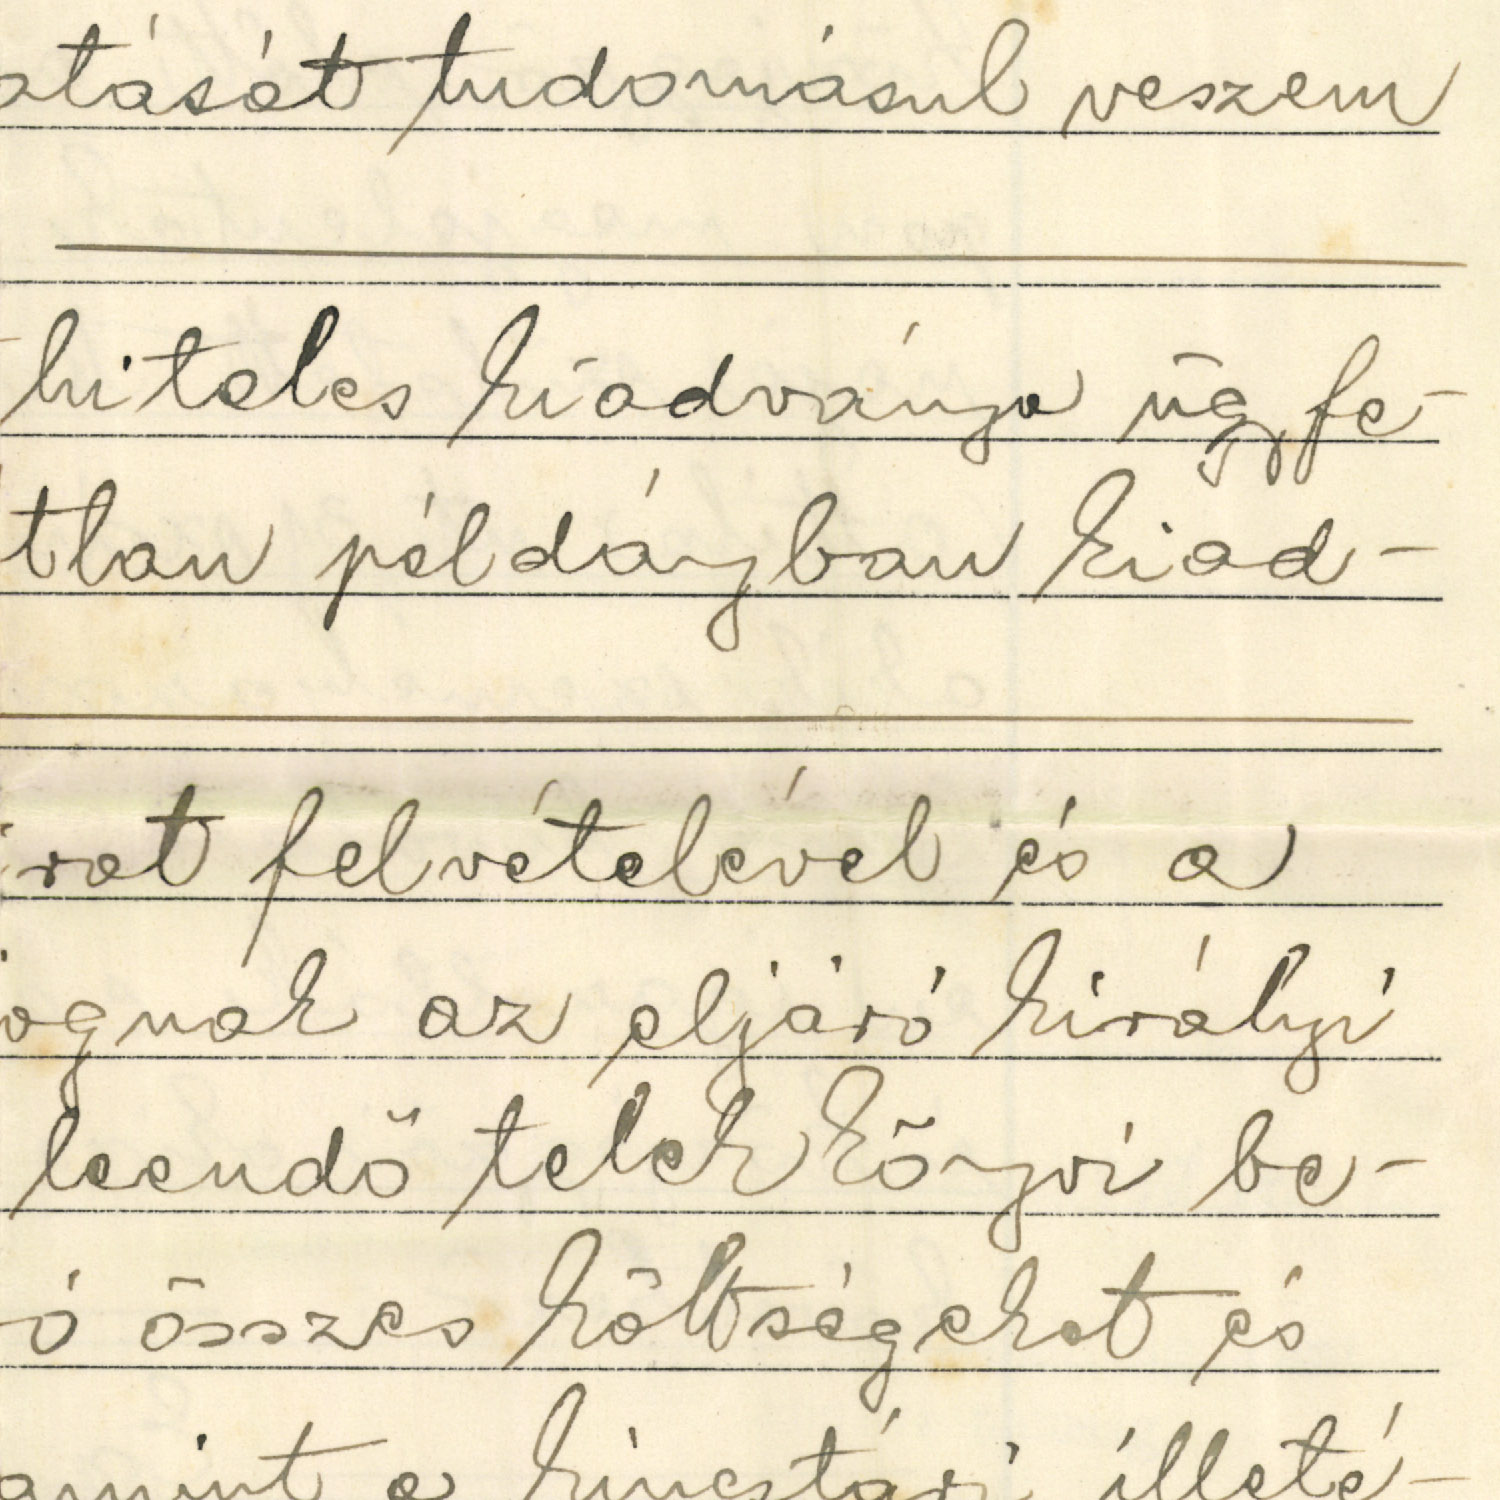 atását tudomásul veszem
hiteles kiadványa úgy fe-
tlan példányban kiad-
irat felvételével és a
ognak az eljáró királyi
leendő telekkönyvi be-
ó összes költségeket és
amint a kincstári illeté-